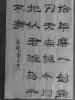 拾年磨一劍霜
刃未曾試今日
把似君誰為不
平事